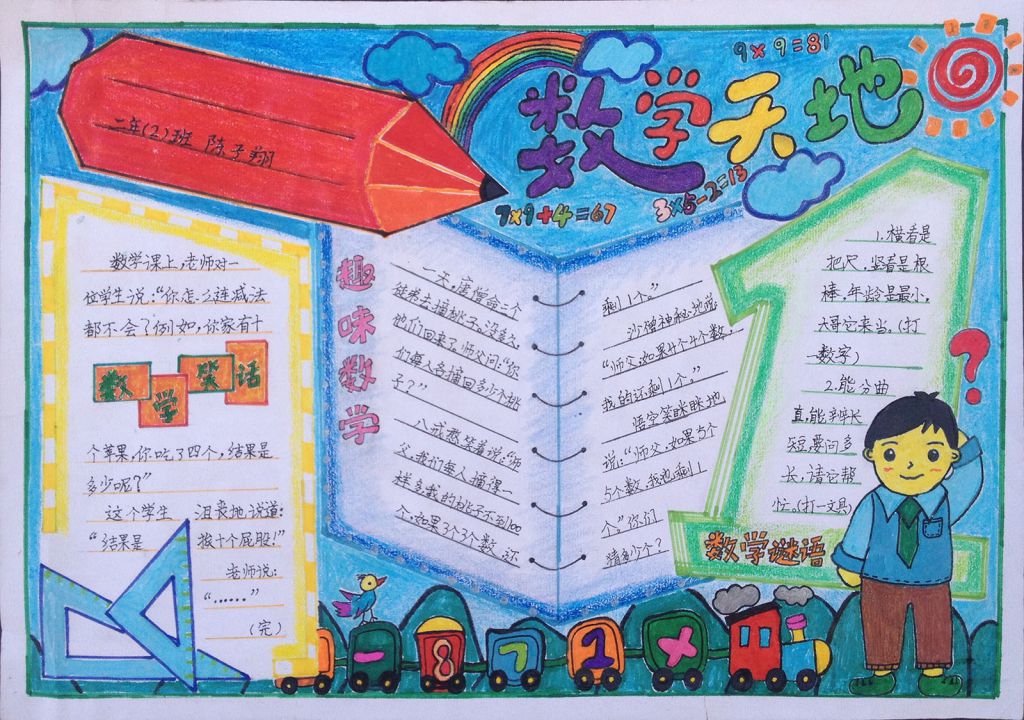 二年(2)班 陈子翔
数学天地
9×9=81
7×9+4=67
3×5-2=13
数学课上,老师对一
位学生说:“你怎么连减法
都不会了例如,你家有十
数学笑话
个苹果,你吃了四个,结果是
多少呢?”
这个学生 沮丧地说道:
“结果是 挨十个屁股!”
老师说:
“……”
(完)
趣味数学
一天,唐僧命三个
徒弟去摘桃子。没多久,
他们回来了。师父问:“你
们每人各摘回多少个桃
子?”
八戒憨笑着说:“师
父,我们每人摘得一
样多,我的桃子不到100
个,如果3个3个数,还
剩1个。”
沙僧神秘地说
“师父,如果4个4个数,
我的还剩1个。”
悟空笑眯眯地
说:“师父,如果5个
5个数,我也剩1
个。”你们
猜多少个?
1.横看是
把尺,竖看是根
棒,年龄是最小,
大哥它来当。(打
一数字)
2.能分曲
直,能辛辛长
短,要问多
长,请它帮
忙。(打一文具)
数学谜语
?
- 8 7 1 ×